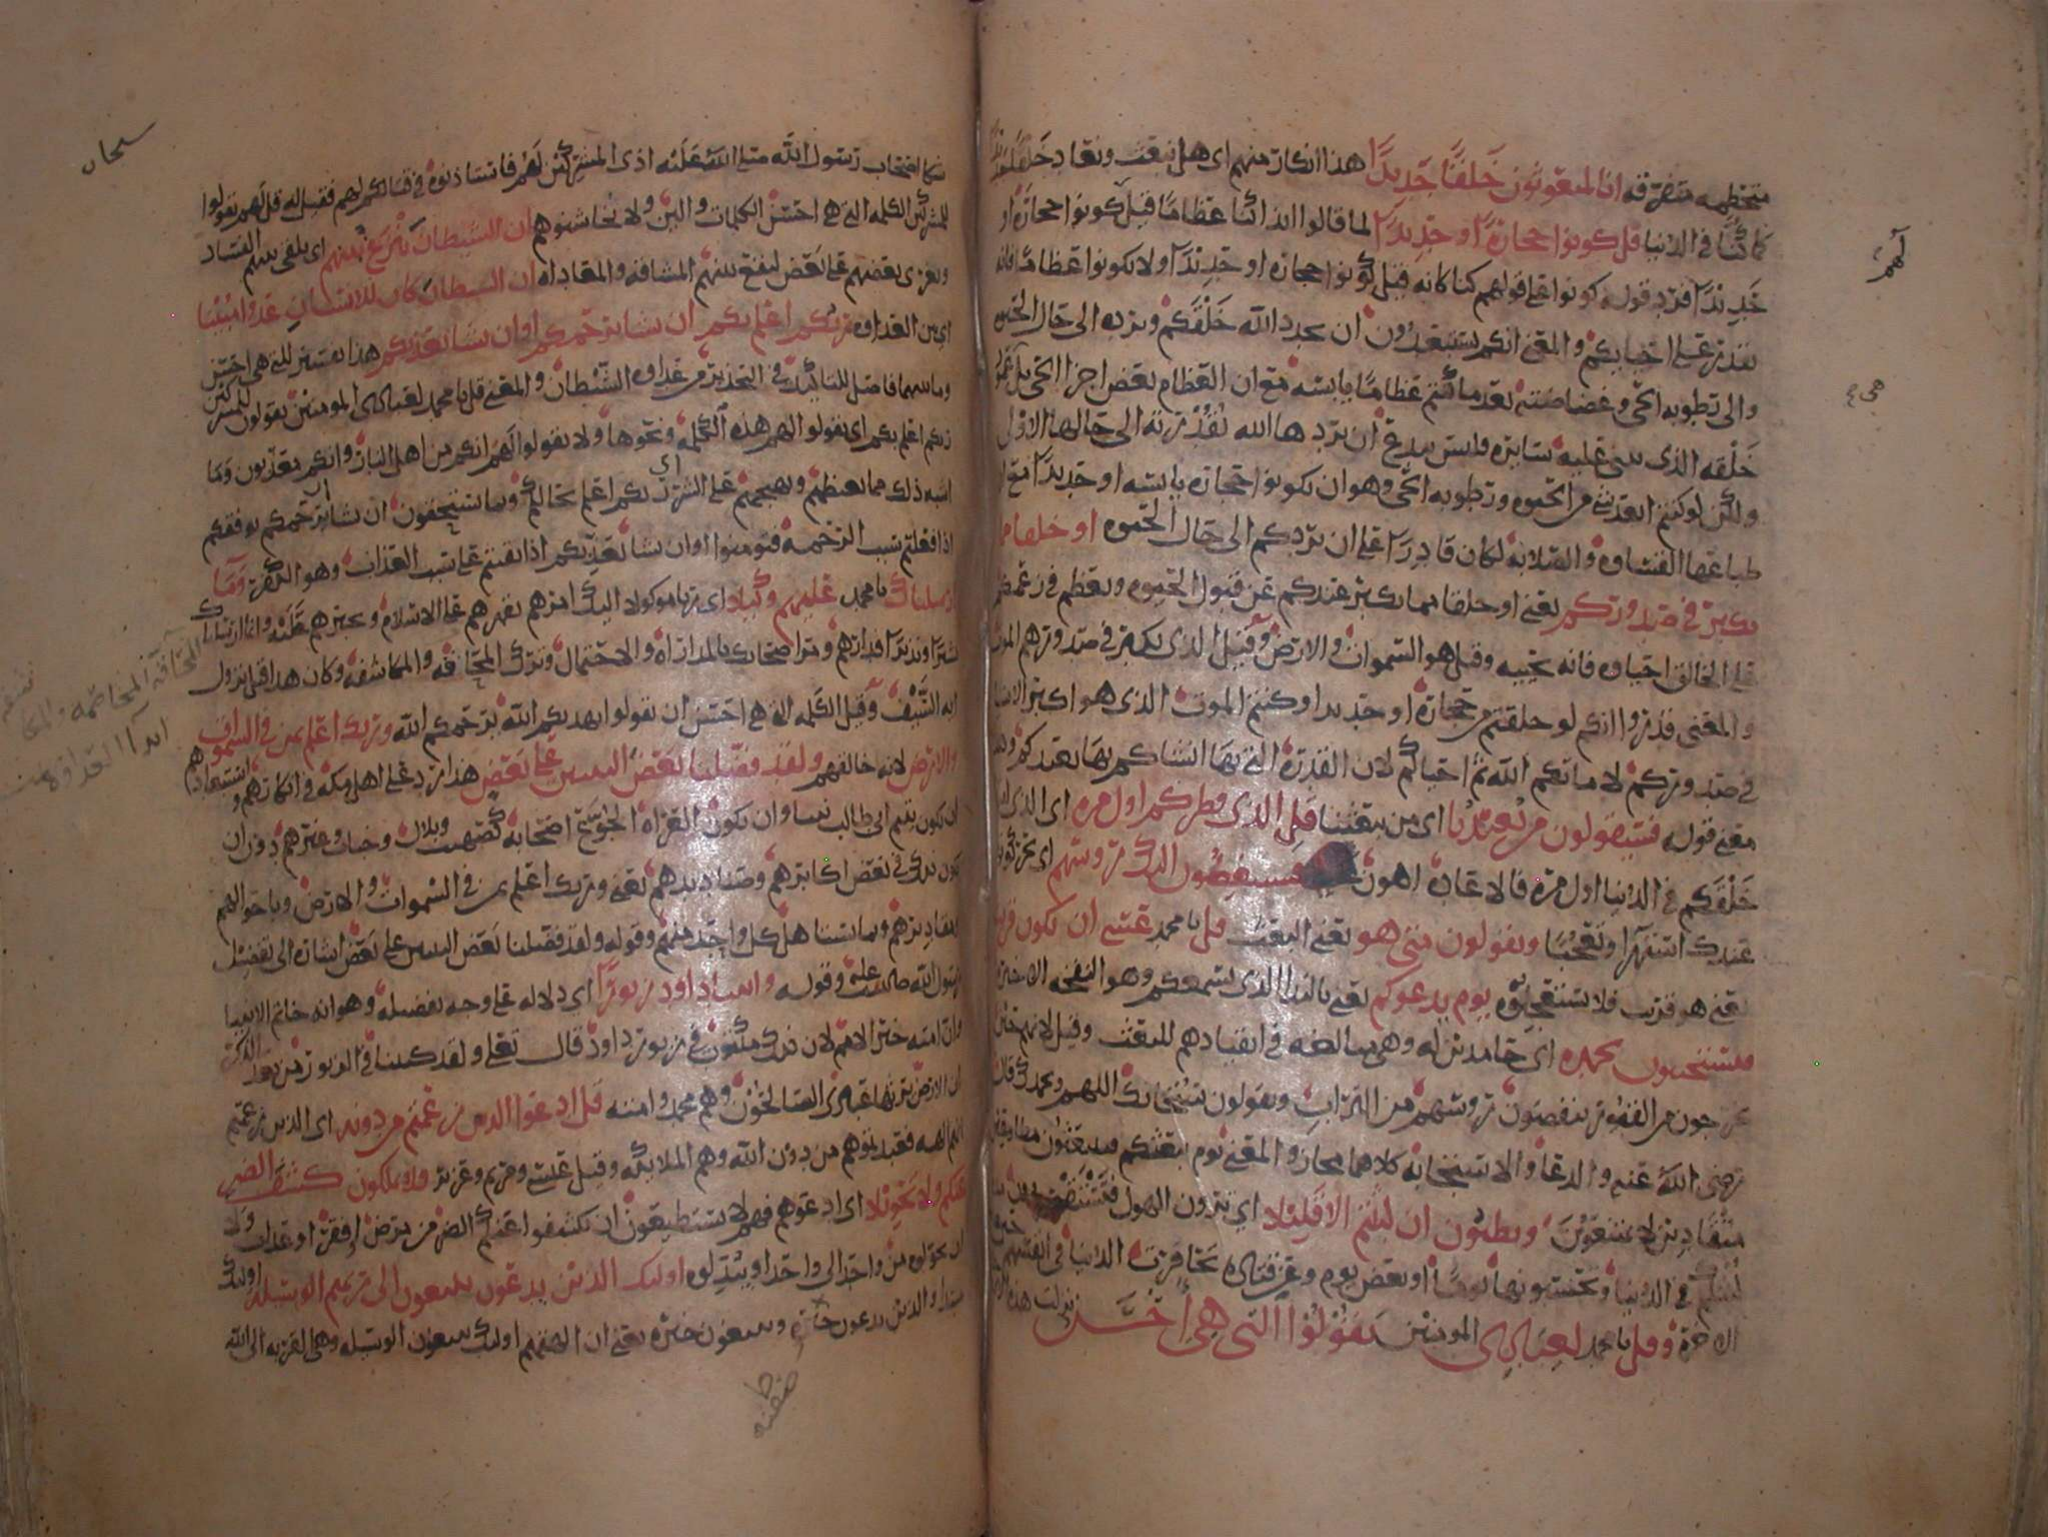 متحطمه متفرقه انا لمبعوثون خلقا جديدا هذا انكار منهم اي هل نبعث ونعاد خلقا جديدا
كما كنا في الدنيا قل كونوا حجارة او حديدا لما قالوا ائذا كنا عظاما قيل كونوا حجارة او
حديدا فرد قوله كونوا على قولهم كنا كانه قيل كونوا حجارة او حديدا ولا تكونوا عظاما فانه
يقدر على احيائكم والمعنى انكم تستبعدون ان يجدد الله خلقكم ويرده الى حال الحيوه
والى رطوبه الحي وغضاضته بعد ما كنتم عظاما يابسه مع ان العظام بعض اجزا الحي بل هي
خلقه الذي يبنى عليه سايره وليس ببدع ان يردها الله بقدرته الى حالها الاولى
ولكن لو كنتم ابعد شي من الحيوه ورطوبه الحي وهو ان تكونوا حجارة يابسه او حديدا مع ان
طباعها القساوه والصلابه لكان قادرا على ان يردكم الى حال الحيوه او خلقا مما
يكبر في صدوركم يعني او خلقا مما يكبر عندكم عن قبول الحيوه ويعظم في زعمكم
على الخالق احياوه فانه يحييه وقيل هو السموات والارض وقيل الذي يكبر في صدورهم الموت
والمعنى قدروا انكم لو خلقتم من حجارة او حديد او كنتم الموت الذي هو اكبر الاشيا
في صدوركم لاماتكم الله ثم احياكم لان القدرة التي بها انشاكم بها يعيدكم وهذا
معنى قوله فسيقولون من يعيدنا اي من يبعثنا قل الذي فطركم اول مره اي الذي
خلقكم في الدنيا اول مره فالاعاده اهون فسينغضون اليك رؤسهم اي يحركونها
عندك استهزا وتعجبا ويقولون متى هو يعني البعث قل يا محمد عسى ان يكون قريبا
يعني هو قريب فلا تستعجلوه يوم يدعوكم يعني بالندا الذي يسمعكم وهو النفخه الاخيره
فتستجيبون بحمده اي حامدين له وهي مبالغه في انقيادهم للبعث وقيل لانهم حين
يخرجون من القبور ينفضون رؤسهم من التراب ويقولون سبحانك اللهم وبحمدك قال
رضي الله عنه والدعا والاستجابه كلاهما مجاز والمعنى يوم يبعثكم فتبعثون مطاوعين
منقادين لا تمتنعون وتظنون ان لبثتم الا قليلا اي ترون الهول فتستقصرون
لبثكم في الدنيا وتحسبونها يوما او بعض يوم وعن قتاده تحاقرت الدنيا في انفسهم حين
الاخرة وقل يا محمد لعبادي المومنين يقولوا التي هي احسن نزلت هذه
سبحان
شكا اصحاب رسول الله صلى الله عليه اذى المشركين لهم فاستاذنوه في قتالهم فقيل له قل لهم يقولوا
للمشركين الكلمه التي هي احسن الكلمات والين ولا يخاشنوهم ان الشيطان ينزغ بينهم اي يلقي بينهم الفساد
ويغري بعضهم على بعض ليقع بينهم المشاقه والمعاداه ان الشيطان كان للانسان عدوا مبينا
اي بين العداوه ربكم اعلم بكم ان يشا يرحمكم او ان يشا يعذبكم هذا تفسير للتي هي احسن
وما بينهما فاصل للتاكيد في التحذير من عداوه الشيطان والمعنى قل يا محمد لعبادي المومنين يقولون للمشركين
ربكم اعلم بكم اي يقولوا لهم هذه الكلمه ونحوها ولا يقولوا لهم انكم من اهل النار وانكم معذبون وما
اشبه ذلك مما يغيظهم ويهيجهم على الشر اي ربكم اعلم بحالكم وبما تستحقون ان يشا يرحمكم يوفقكم
اذا فعلتم سبب الرحمه فتومنوا او ان يشا يعذبكم اذا اقمتم على سبب العذاب وهو الكفر وما
ارسلناك يا محمد عليهم وكيلا اي ربا موكولا اليك امرهم تقهرهم على الاسلام وتجبرهم عليه وانما ارسلناك
بشيرا ونذيرا فدارهم ومر اصحابك بالمداراه والاحتمال وترك المحاقه والمكاشفه وكان هذا قبل نزول
ايه السيف وقيل الكلمه التي هي احسن ان تقولوا يهديكم الله يرحمكم الله وربك اعلم بمن في السموات
والارض لانه خالقهم ولقد فضلنا بعض النبيين على بعض هذا رد على اهل مكه في انكارهم واستبعادهم
ان يكون يتيم ابي طالب نبيا وان يكون العراه الجوع اصحابه كصهيب وبلال وخباب وغيرهم دون ان
يكون ذلك في بعض اكابرهم وصناديدهم يعني وربك اعلم بمن في السموات والارض وباحوالهم
ومقاديرهم وبما يستاهل كل واحد منهم وقوله ولقد فضلنا بعض النبيين على بعض اشاره الى تفضيل
رسول الله صلى الله عليه وقوله واتينا داود زبورا اي دلاله على وجه تفضيله وهو انه خاتم الانبيا
وان امته خير الامم لان ذلك مكتوب في زبور داود قال تعالى ولقد كتبنا في الزبور من بعد الذكر
ان الارض يرثها عبادي الصالحون وهم محمد وامته قل ادعوا الذين زعمتم من دونه اي الذين زعمتم
انهم الهه فعبدتموهم من دون الله وهم الملايكه وقيل عيسى ومريم وعزير فلا يملكون كشف الضر
عنكم ولا تحويلا اي ادعوهم فهم لا يستطيعون ان يكشفوا عنكم الضر من مرض او فقر او عذاب ولا
ان يحولوه من واحد الى واحد او يبدلوه اوليك الذين يدعون يبتغون الى ربهم الوسيله اوليك
مبتدا والذين يدعون خبره ويبتغون خبره يعني ان الهتهم اوليك يبتغون الوسيله وهي القربه الى الله